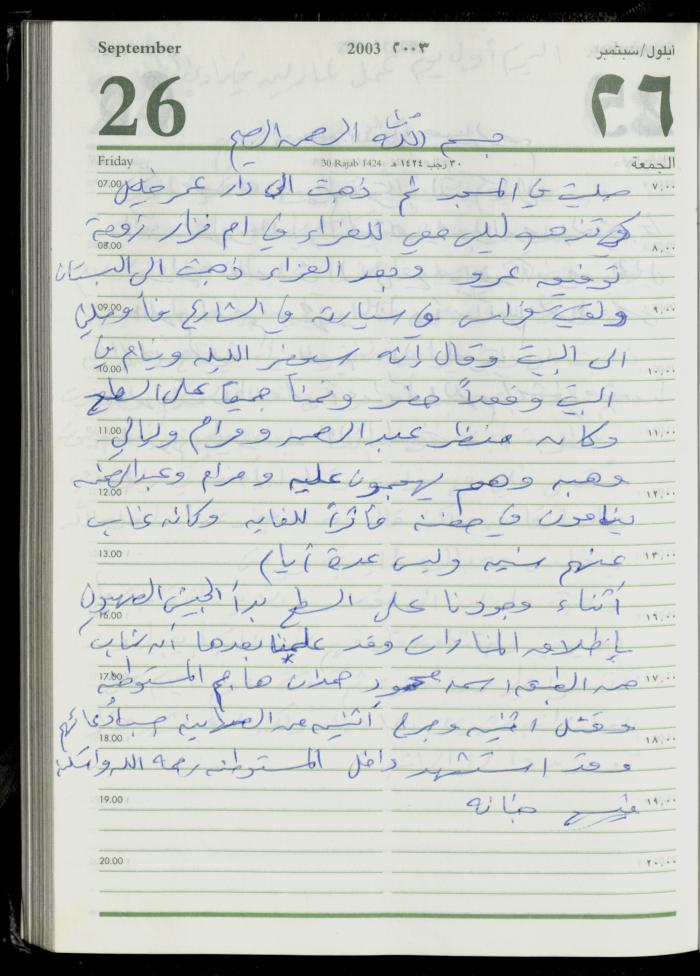 September 2003 ٢٠٠٣ أيلول/سبتمبر
26 ٢٦
بسم الله الرحمن الرحيم
Friday 30 Rajab 1424 ٣٠ رجب ١٤٢٤ هـ الجمعة
07.00 صليت في المسجد ثم ذهبت الى دار عمر خليل ٧,٠٠
كي تذهب ليلى معي للعزاء في ام فزاز زوجة
08.00 ٨,٠٠
توفيق عمرو وبعد العزاء ذهبت الى البستان
09.00 ولقيت فراس في سيارته في الشارع فأوصلني ٩,٠٠
الى البيت وقال إنه سيحضر الليلة وينام في
10.00 ١٠,٠٠
البيت وفعلاً حضر ونمنا جميعاً على السطح
11.00 وكان منظر عبد الرحمن ومرام وليالي ١١,٠٠
وهبه وهم يهجمون عليه ومرام وعبد الرحمن
12.00 ١٢,٠٠
ينامون في حضنه مؤثراً للغاية وكأنه غاب
13.00 عنهم سنين وليس عدة أيام ١٣,٠٠
أثناء وجودنا على السطح بدأ الجيش الصهيوني
16.00 ١٦,٠٠
بإطلاق المنارات وقد علمنا بعدها أن شاب
17.00 من الطبقة اسمه محمود حمدان هاجم المستوطنة ١٧,٠٠
وقتل اثنين وجرح أثنين من الصهاينة حسب أدعائهم
18.00 ١٨,٠٠
وقد استشهد داخل المستوطنة رحمه الله واسكنه
19.00 فسيح جنانه ١٩,٠٠
20.00 ٢٠,٠٠